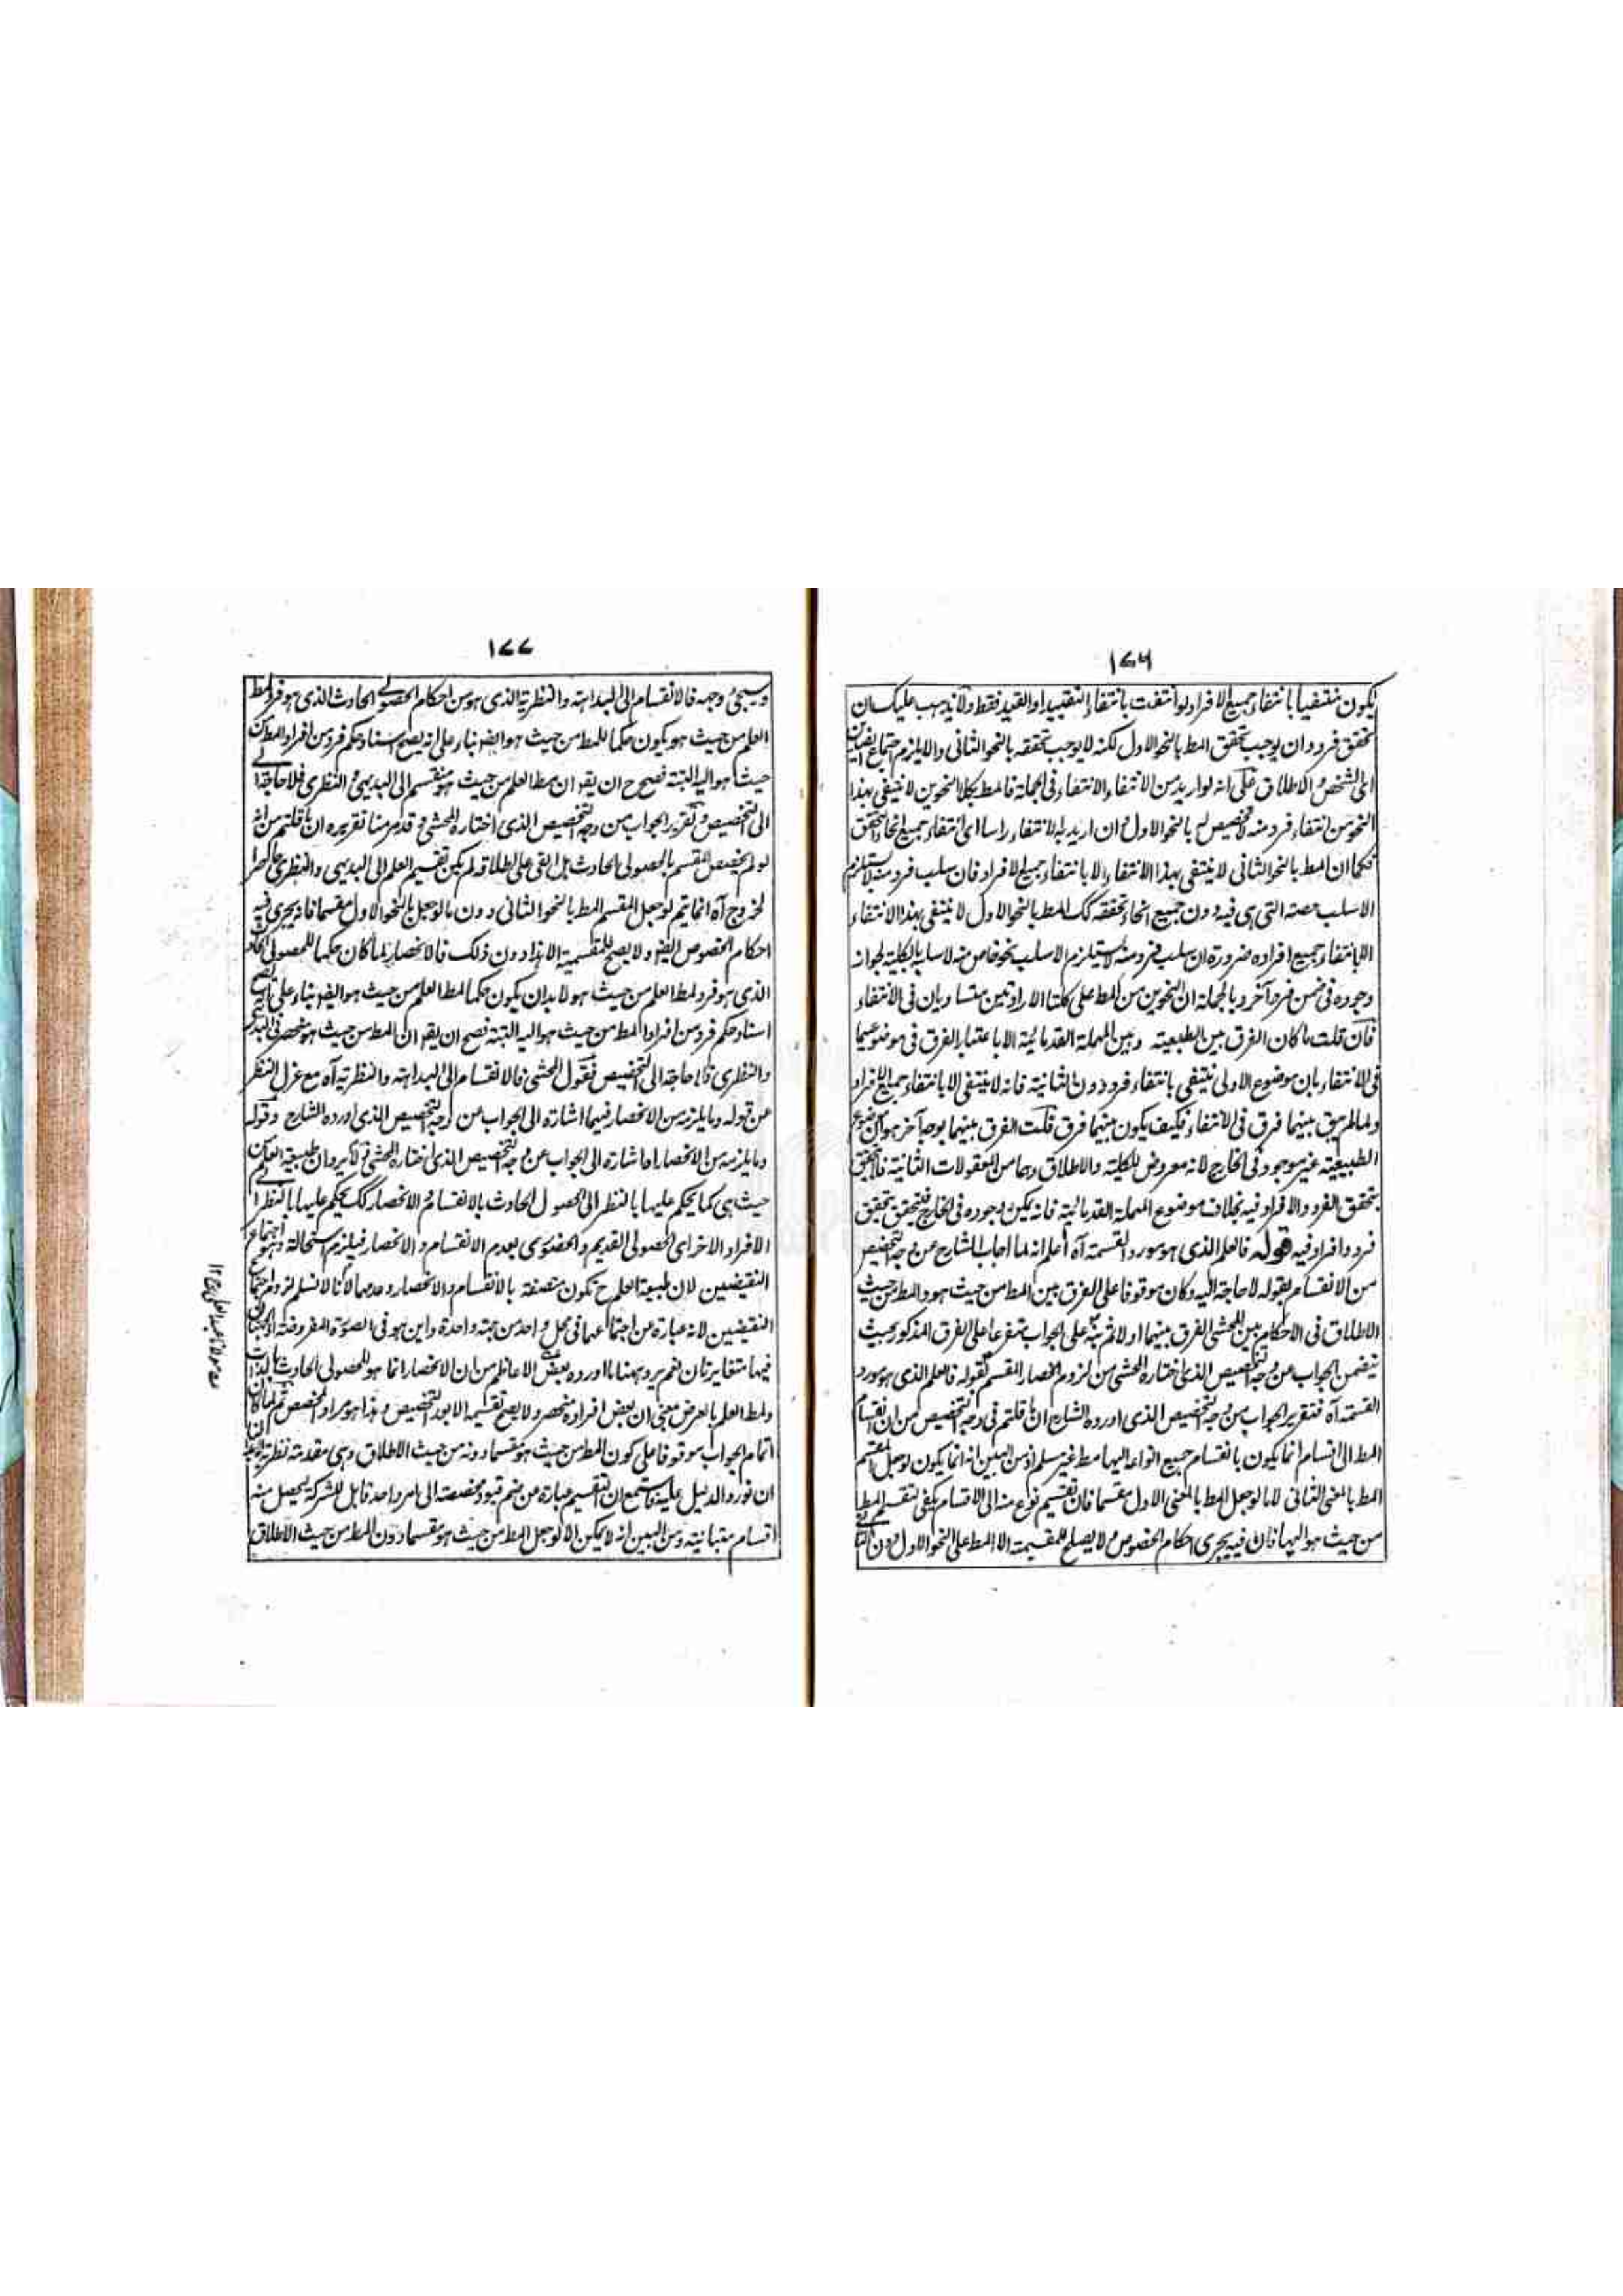 ١٧٦
يكون منتفيا بانتفاء جميع الافراد لو انتفت بانتفاء التقييد او القيد فقط ولا يذهب عليك ان
تحقق فرد وان يوجب تحقق المط بالنحو الاول لكنه لا يوجب تحققه بالنحو الثانى والا يلزم اجتماع
اى الشخص والاطلاق على انه لو اريد من الانتفاء الانتفاء فى الجملة فالمط بكلا النحوين لا ينتفى بهذا
النحو من انتفاء فرد منه لا تخصيص له بالنحو الاول وان اريد به الانتفاء راسا اى انتفاء جميع انحاء التحقق
فكما ان المط بالنحو الثانى لا ينتفى بهذا الانتفاء الا بانتفاء جميع الافراد فان سلب فرد منه لا يستلزم
الا سلب حصته التى هى فيه دون جميع انحاء تحققه كك المط بالنحو الاول لا ينتفى بهذا الانتفاء
الا بانتفاء جميع افراده ضرورة ان سلب فرد منه لا يستلزم الا سلب نحو خاص منه لا سلبه بالكلية لجواز
وجوده فى ضمن فرد آخر وبالجملة ان النحوين من المط على كلتا الارادتين متساويان فى الانتفاء
فان قلت ما كان الفرق بين الطبيعية وبين المهملة القدمائية الا باعتبار الفرق فى موضوعيهما
فى الانتفاء بان موضوع الاولى ينتفى بانتفاء فرد دون الثانية فانه لا ينتفى الا بانتفاء جميع الافراد
ولما لم يبق بينهما فرق فى الانتفاء فكيف يكون بينهما فرق قلت الفرق بينهما بوجه آخر هو ان موضوع
الطبيعية غير موجود فى الخارج لانه معروض للكلية والاطلاق وهما من المعقولات الثانية فلا يتحقق
بتحقق الفرد والافراد فيه بخلاف موضوع المهملة القدمائية فانه يمكن وجوده فى الخارج فيتحقق بتحقق
فرد وافراد فيه قوله فالعلم الذى هو مورد القسمة آه اعلم انه لما اجاب الشارح عن وجه التخصيص
من الانقسام بقوله لا حاجة اليه وكان موقوفا على الفرق بين المط من حيث هو والمط من حيث
الاطلاق فى الاحكام بين المحشى الفرق بينهما اولا ثم نبه على الجواب متفرعا على الفرق المذكور بحيث
يتضمن الجواب عن وجه التخصيص الذى اختاره المحشى من لزوم انحصار المقسم بقوله فالعلم الذى هو مورد
القسمة آه فتقرير الجواب من وجه التخصيص الذى اورده الشارح ان ما قلتم فى وجه التخصيص من ان انقسام
المط الى اقسام انما يكون بانقسام جميع انواعه اليها مط غير مسلم اذ من البين انه انما يكون لو جعل المقسم
المط بالمعنى الثانى لا ما لو جعل المط بالمعنى الاول مقسما فان تقسيم نوع منه الى الاقسام يكفى لتقسيم المط
من حيث هو اليها فان فيه يجرى احكام الخصوص ولا يصلح للمقسمية الا المط على النحو الاول دون
١٧٧
وسيجئ وجهه فالانقسام الى البداهة والنظرية الذى هو من احكام الحصولى الحادث الذى هو فرد لمط
العلم من حيث هو يكون حكما للمط من حيث هو ايضا بناء على انه يصح اسناد حكم فرد من افراد المط من
حيث هو اليه البتة فصح ح ان يقو ان مط العلم من حيث هو منقسم الى البديهى والنظرى فلا حاجة
الى التخصيص وتقرير الجواب من وجه التخصيص الذى اختاره المحشى وقد مر منا تقريره ان ما قلتم من انه
لو لم يخصص المقسم بالحصولى الحادث بل ابقى على اطلاقه لم يكن تقسيم العلم الى البديهى والنظرى حاصرا
لخروج آه انما يتم لو جعل المقسم المط بالنحو الثانى دون ما لو جعل بالنحو الاول مقسما فانه يجرى فيه
احكام الخصوص ايضا ولا يصح للمقسمية الا هذا دون ذلك فالانحصار لما كان حكما للحصولى الحادث
الذى هو فرد لمط العلم من حيث هو لابد ان يكون حكما لمط العلم من حيث هو ايضا بناء على انه يصح
اسناد حكم فرد من افراد المط من حيث هو اليه البتة فصح ان يقو ان المط من حيث هو منحصر فى البديهى
والنظرى فلا حاجة الى التخصيص فقول المحشى فالانقسام الى البداهة والنظرية آه مع عزل النظر
عن قوله وما يلزمه من الانحصار فيهما اشارة الى الجواب من وجه التخصيص الذى اورده الشارح وقوله
وما يلزمه من الانحصار اه اشارة الى الجواب عن وجه التخصيص الذى اختاره المحشى ولا يرد ان طبيعة العلم من
حيث هى كما يحكم عليها بالنظر الى الحصولى الحادث بالانقسام والانحصار كك يحكم عليها بالنظر الى
الافراد الاخر اى الحصولى القديم والحضورى بعدم الانقسام والانحصار فيلزم استحالة وهو اجتماع
النقيضين لان طبيعة العلم ح تكون متصفة بالانقسام والانحصار وعدمهما لانا لا نسلم لزوم اجتماع
النقيضين لانه عبارة عن اجتماعهما فى محل واحد من جهة واحدة واين هو فى الصورة المفروضة الجهتان
فيها متغايرتان نعم يرد ههنا ما اورده بعض الاعاظم من ان الانحصار انما هو للحصولى الحادث بالذات
ولمط العلم بالعرض بمعنى ان بعض افراده منحصر ولا يصح تقسيمه الا بعد التخصيص وهذا هو مراد المخصص ثم لما كان
اتمام الجواب موقوفا على كون المط من حيث هو مقسما دونه من حيث الاطلاق وهى مقدمة نظرية
ان نورد الدليل عليه فاستمع ان التقسيم عبارة عن ضم قيود مخصصة الى امر واحد قابل للشركة يحصل منه
اقسام متباينة ومن البين انه لا يمكن الا لو جعل المط من حيث هو مقسما دون المط من حيث الاطلاق
مولانا عبد العلى رح ١٢